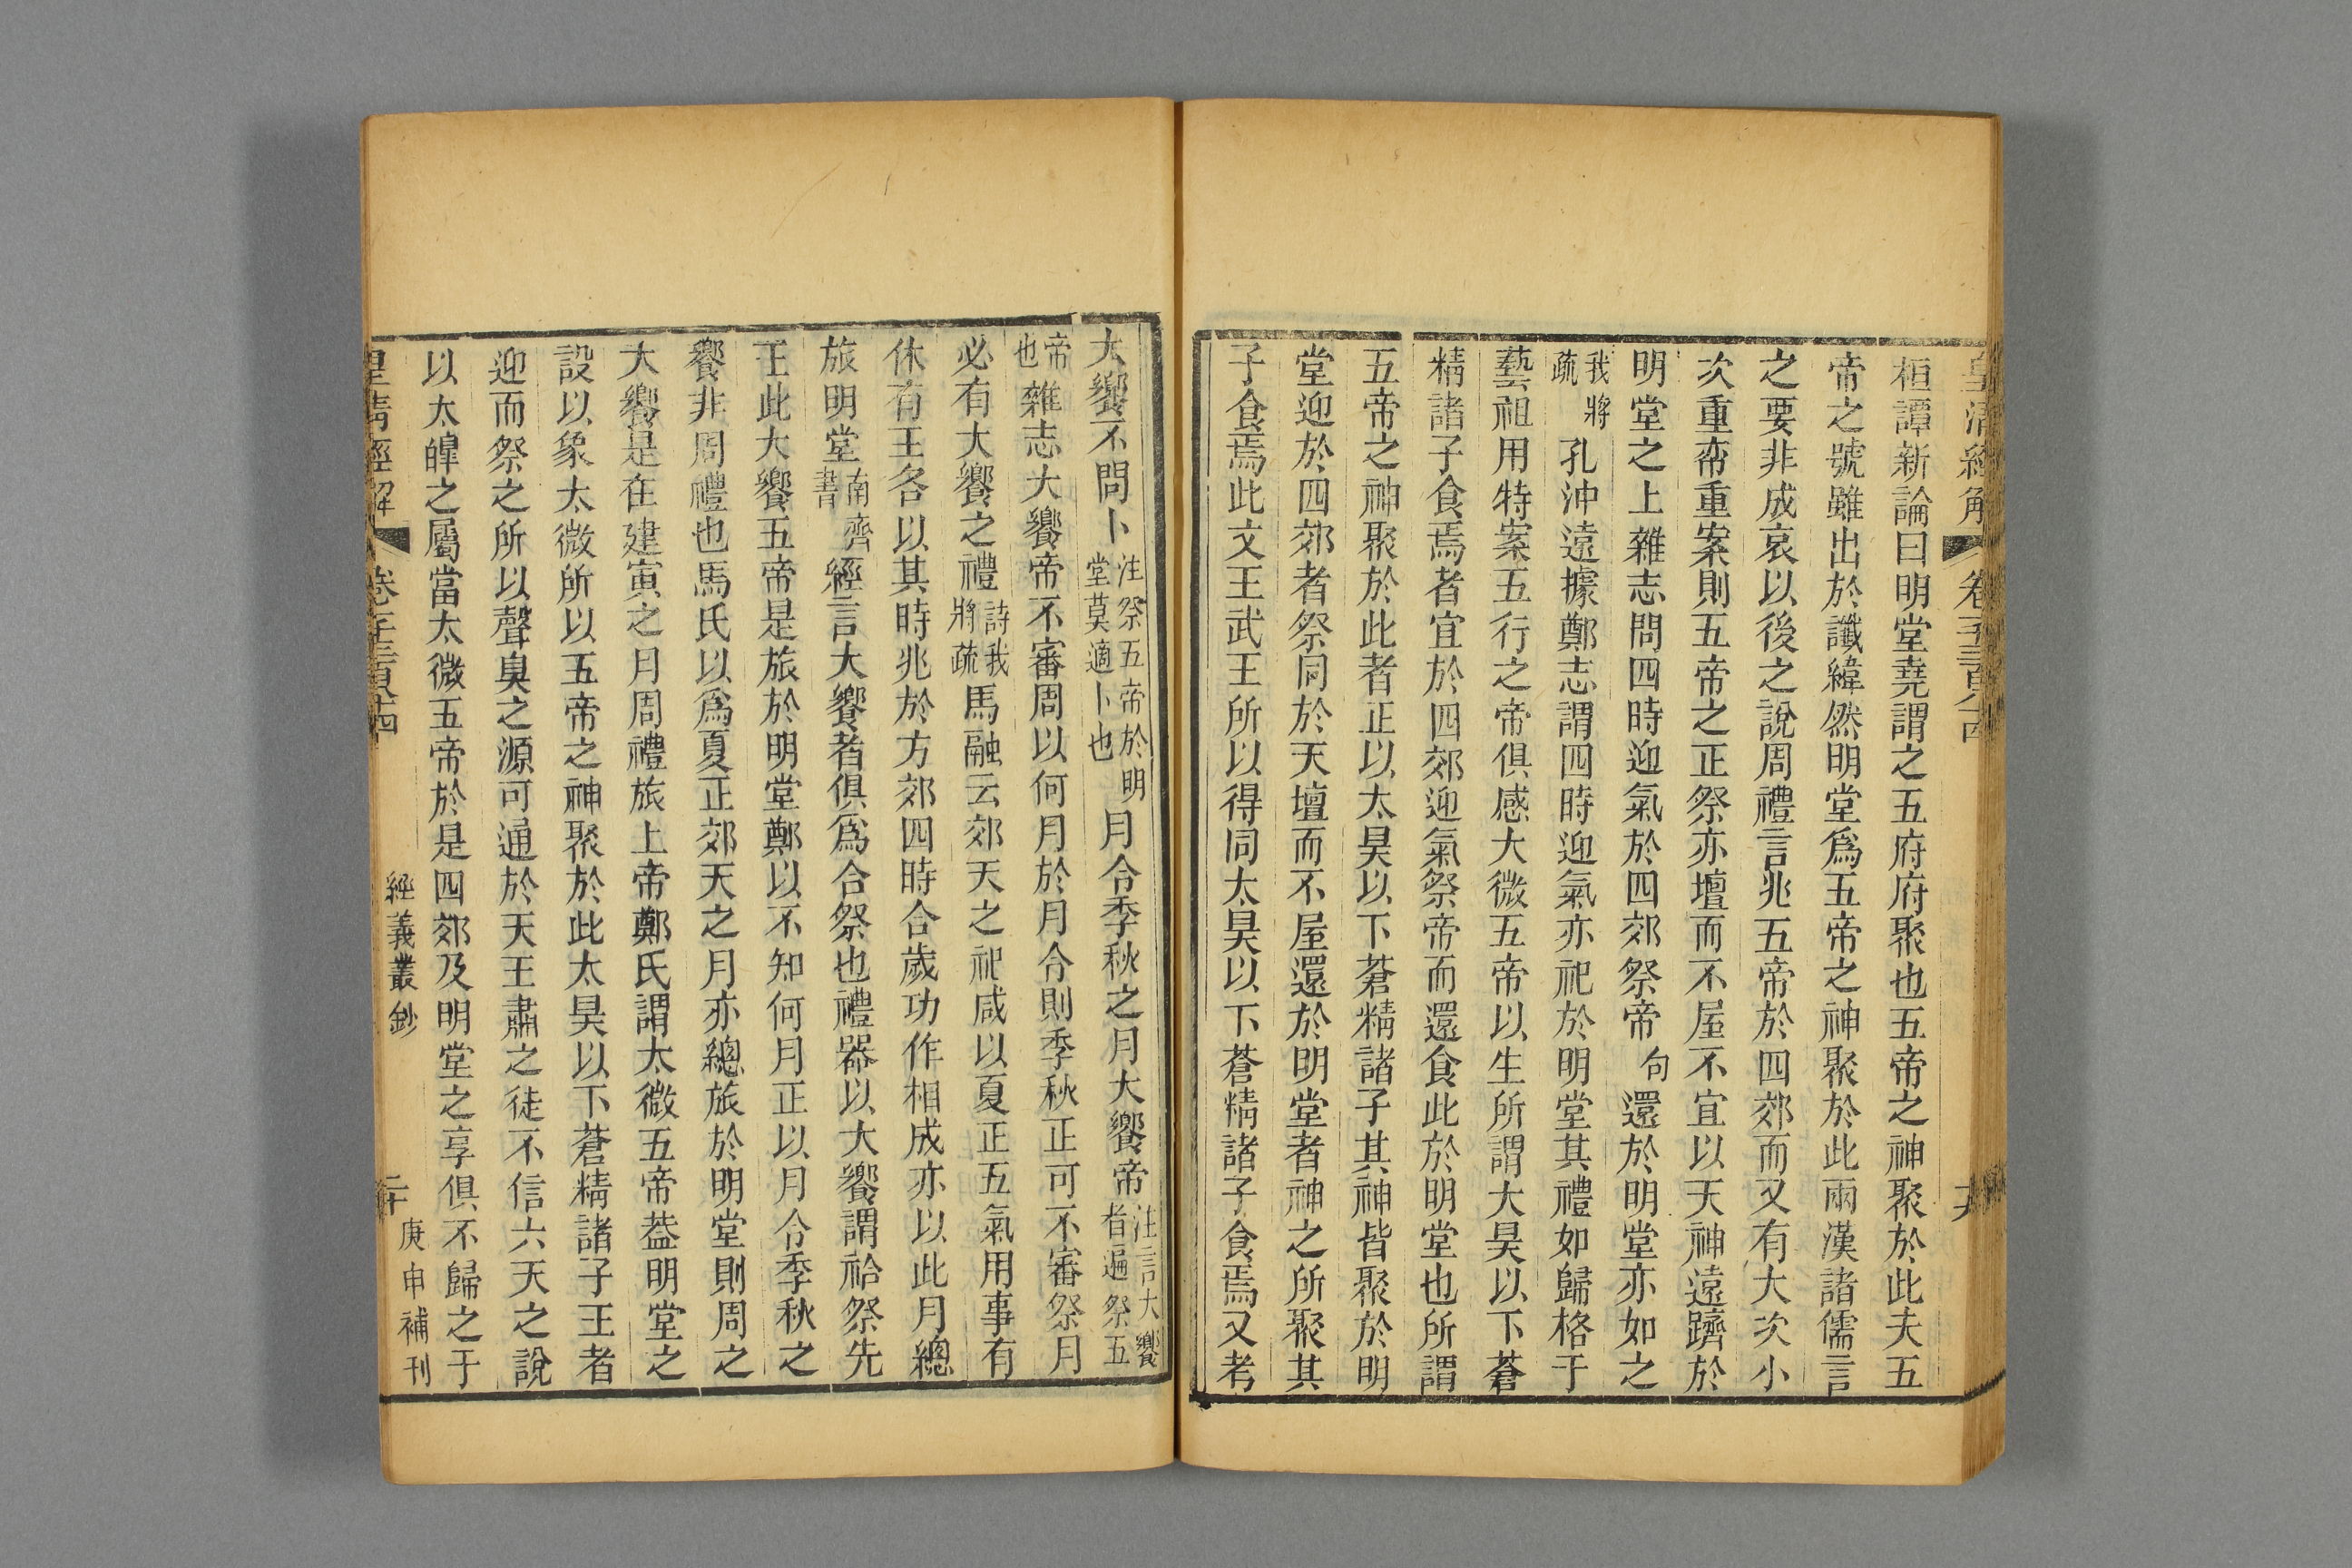 皇清經解
卷
桓譚新論曰明堂堯謂之五府府聚也五帝之神聚於此夫五
帝之號雖出於讖緯然明堂爲五帝之神聚於此兩漢諸儒言
之要非成哀以後之說周禮言兆五帝於四郊而又有大次小
次重帟重案則五帝之正祭亦壇而不屋不宜以天神遠躋於
明堂之上雜志問四時迎氣於四郊祭帝句還於明堂亦如之
我將疏孔沖遠據鄭志謂四時迎氣亦祀於明堂其禮如歸格于
藝祖用特案五行之帝俱感大微五帝以生所謂大昊以下蒼
精諸子食焉者宜於四郊迎氣祭帝而還食此於明堂也所謂
五帝之神聚於此者正以太昊以下蒼精諸子其神皆聚於明
堂迎於四郊者祭同於天壇而不屋還於明堂者神之所聚其
子食焉此文王武王所以得同太昊以下蒼精諸子食焉又考
大饗不問卜注祭五帝於明堂莫適卜也月令季秋之月大饗帝注言大饗者遍祭五
帝也雜志大饗帝不審周以何月於月令則季秋正可不審祭月
必有大饗之禮詩我將疏馬融云郊天之祀咸以夏正五氣用事有
休有王各以其時兆於方郊四時合歲功作相成亦以此月總
旅明堂南齊書經言大饗者俱爲合祭也禮器以大饗謂祫祭先
王此大饗五帝是旅於明堂鄭以不知何月正以月令季秋之
饗非周禮也馬氏以爲夏正郊天之月亦總旅於明堂則周之
大饗是在建寅之月周禮旅上帝鄭氏謂太微五帝葢明堂之
設以象太微所以五帝之神聚於此太昊以下蒼精諸子王者
迎而祭之所以聲臭之源可通於天王肅之徒不信六天之說
以太皥之屬當太微五帝於是四郊及明堂之享俱不歸之于
皇清經解
經義叢鈔
二十
庚申補刊